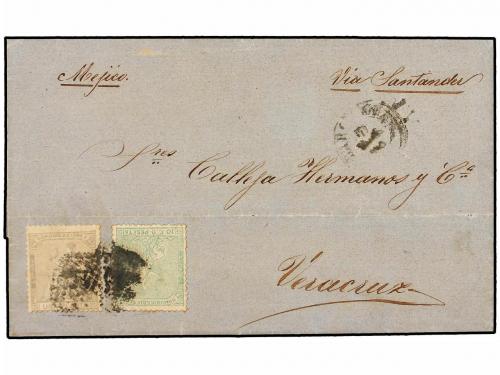 Mejico. Via Santander
Sres
Calleja Hermanos y Cª
Veracruz
10 C. D PESETA